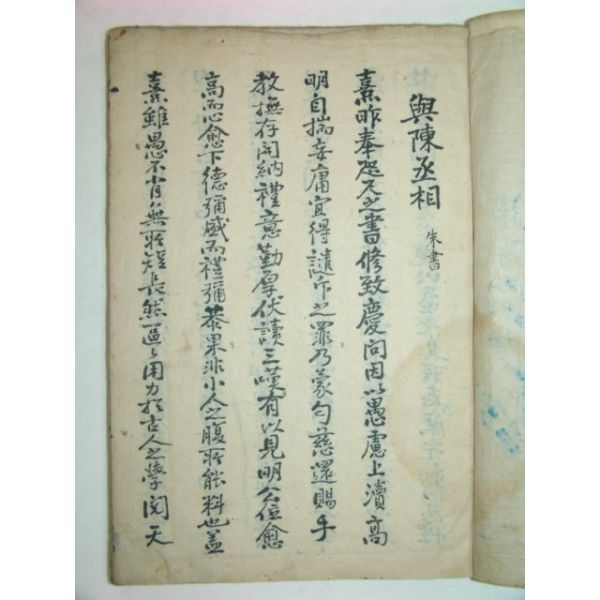 與陳丞相
朱書
熹昨奉咫尺之書修致慶問因以愚慮上瀆高
明自揣妄庸宜得譴斥之罪乃蒙勻慈還賜手
教撫存開納禮意勤厚伏讀三嘆有以見明公位愈
高而心愈下德彌盛而禮彌恭果非小人之腹所能料也蓋
熹雖愚不肖無所短長然區〻用力於古人之學閱天